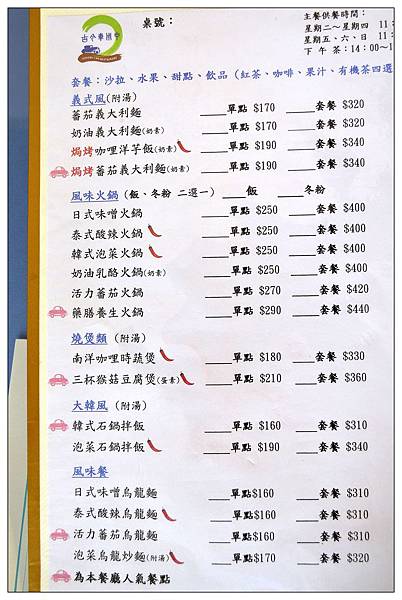 古今車風亭
桌號：
主餐供餐時間：
星期二~星期四 11:
星期五、六、日 11:
下午茶:14:00~1
套餐：沙拉、水果、甜點、飲品（紅茶、咖啡、果汁、有機茶四選
義式風(附湯)
蕃茄義大利麵 ____單點 $170 ____套餐 $320
奶油義大利麵(奶素) ____單點 $170 ____套餐 $320
焗烤咖哩洋芋飯(奶素) ____單點 $190 ____套餐 $340
焗烤蕃茄義大利麵(奶素) ____單點 $190 ____套餐 $340
風味火鍋（飯、冬粉 二選一）____飯 ____冬粉
日式味噌火鍋 ____單點 $250 ____套餐 $400
泰式酸辣火鍋 ____單點 $250 ____套餐 $400
韓式泡菜火鍋 ____單點 $250 ____套餐 $400
奶油乳酪火鍋(奶素) ____單點 $250 ____套餐 $400
活力蕃茄火鍋 ____單點 $270 ____套餐 $420
藥膳養生火鍋 ____單點 $290 ____套餐 $440
燒煲類（附湯）
南洋咖哩時蔬煲 ____單點 $180 ____套餐 $330
三杯猴菇豆腐煲(蛋素) ____單點 $210 ____套餐 $360
大韓風（附湯）
韓式石鍋拌飯 ____單點 $160 ____套餐 $310
泡菜石鍋拌飯 ____單點 $190 ____套餐 $340
風味餐
日式味噌烏龍麵 ____單點$160 ____套餐 $310
泰式酸辣烏龍麵 ____單點$160 ____套餐 $310
活力蕃茄烏龍麵 ____單點$160 ____套餐 $310
泡菜烏龍炒麵(附湯) ____單點$170 ____套餐 $320
為本餐廳人氣餐點